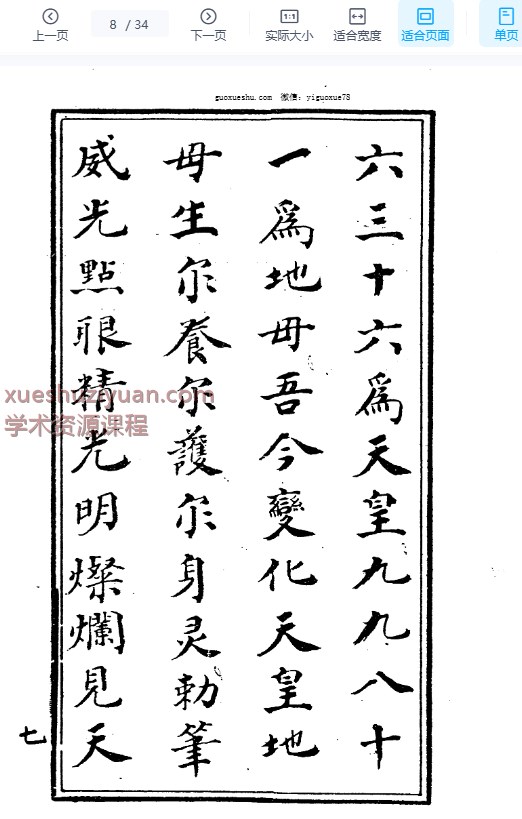 上一页
8 / 34
下一页
实际大小
适合宽度
适合页面
单页
guoxueshu.com 微信：yiguoxue78
六三十六爲天皇九九八十
一爲地母吾今變化天皇地
母生尔養尔護尔身灵勅筆
威光點眼精光明燦爛見天
七
xueshuziyuan.com
学术资源课程